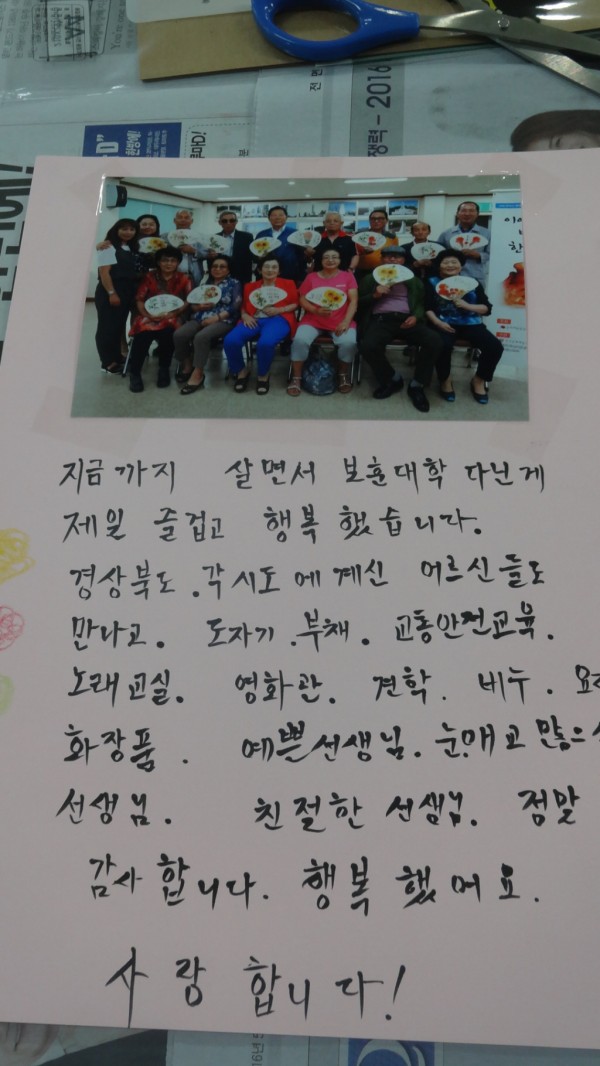 전 면
쟁력 - 2016
지금까지 살면서 보훈대학 다닌게
제일 즐겁고 행복했습니다.
경상북도. 각시도에계신 어르신들도
만나고. 도자기. 부채. 교통안전교육.
노래교실. 영화관. 견학. 비누.
화장품. 예쁜선생님.
선생님. 친절한 선생님. 정말
감사합니다. 행복했어요.
사랑합니다!